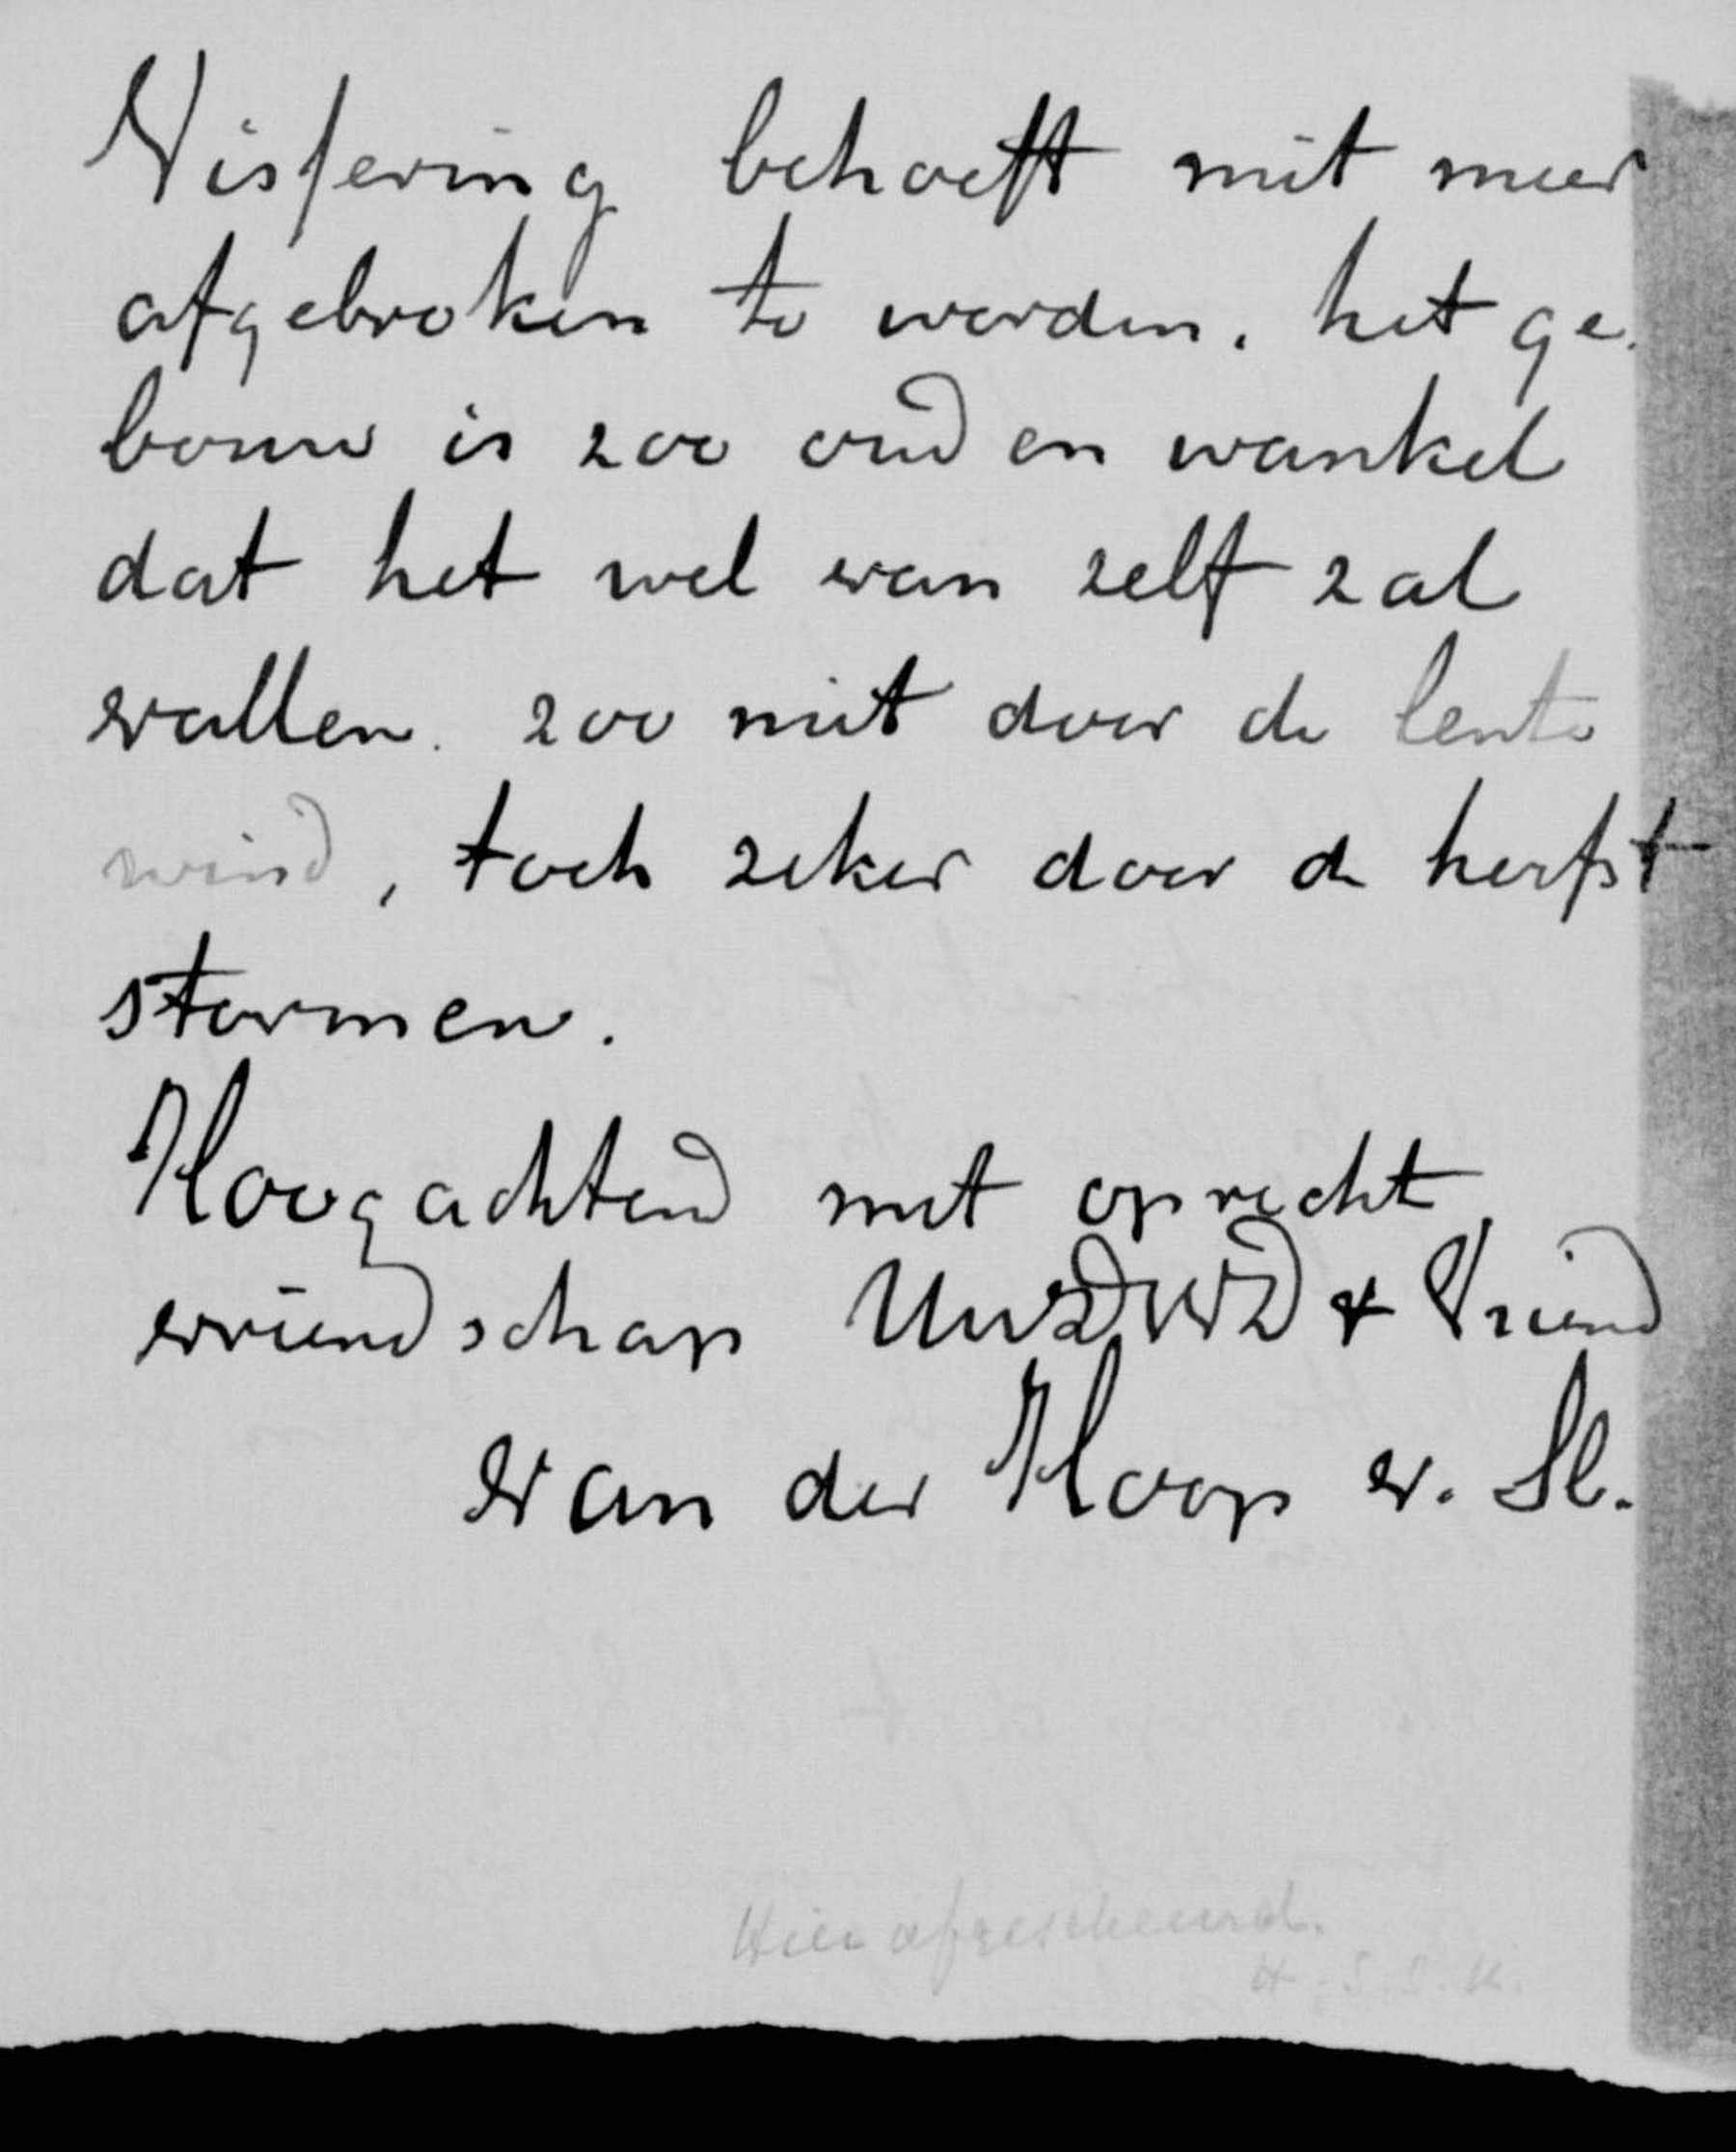 Vissering behoeft niet meer
afgebroken te worden. het ge.
bouw is zoo oud en wankel
dat het wel van zelf zal
vallen. zoo niet door de lente
wind, toch zeker door de herfst
stormen.
Hoogachtend met oprecht
vriendschap UwDWD & Vriend
van der Hoop v. Sl.
Hier afgescheurd.